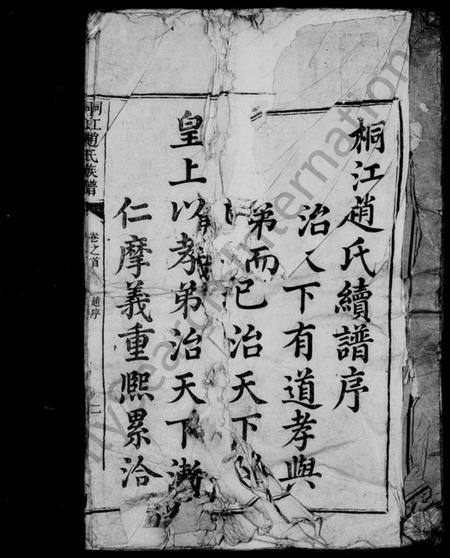 桐江趙氏續譜序
治 下有道孝與
弟而已治天下
皇上以孝弟治天下漸
仁摩義重熙累洽
桐江趙氏族譜
卷之首
趙序